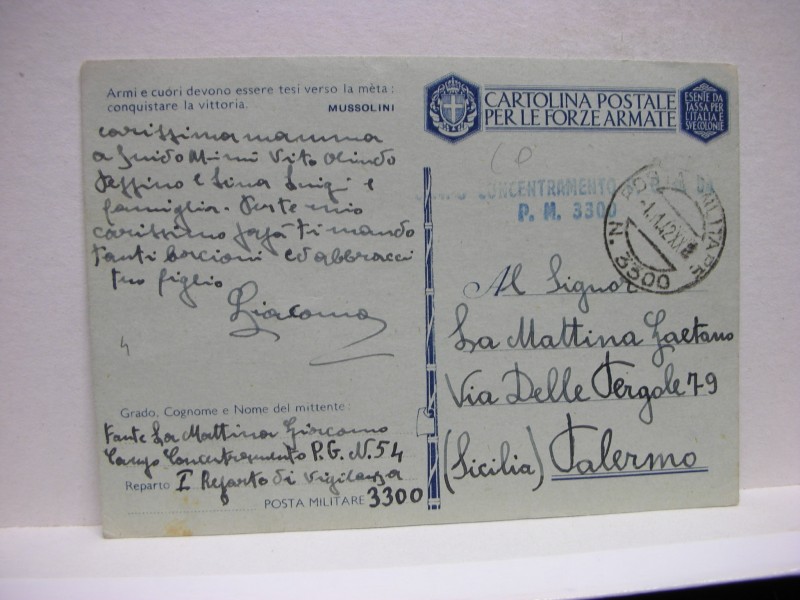 Armi e cuori devono essere tesi verso la mèta:
conquistare la vittoria.
MUSSOLINI
carissima mamma
a Guido Mimì Vito Olindo
Peppino e Lina Luigi e
famiglia. Per te mio
carissimo papà ti mando
tanti bacioni ed abbracci
tuo figlio
Giacomo
4
Grado, Cognome e Nome del mittente:
Fante La Mattina Giacomo
Campo Concentramento P.G. N. 54
Reparto I Reparto di Vigilanza
POSTA MILITARE 3300
CARTOLINA POSTALE
PER LE FORZE ARMATE
ESENTE DA
TASSA PER
L'ITALIA E
SUE COLONIE
CONCENTRAMENTO
P. M. 3300
POSTA MILITARE
N. 3300
Al Signor
La Mattina Gaetano
Via Delle Pergole 79
(Sicilia) Palermo